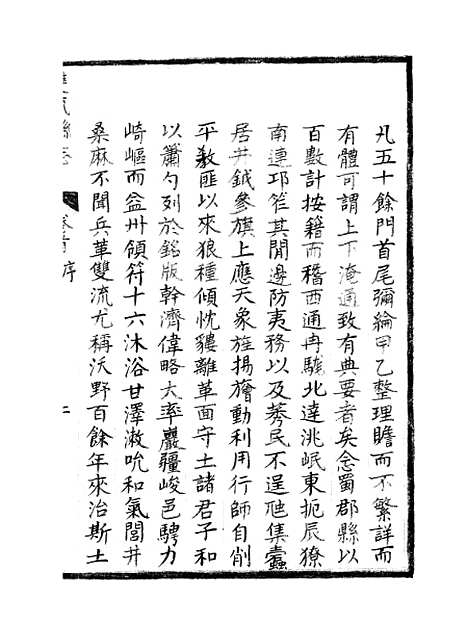 凡五十餘門首尾彌綸甲乙整理贍而不繁詳而
有體可謂上下淹通致有典要者矣念蜀郡縣以
百數計按籍而稽西通冉駹北達洮岷東扼辰獠
南連邛笮其閒邊防夷務以及莠民不逞虺集蠭
居井鉞參旗上應天象旌揚旝動利用行師自削
平教匪以來狼種傾忱貗離革面守土諸君子和
以簫勺列於銘版幹濟偉略大率巖疆峻邑騁力
崎嶇而益州領符十六沐浴甘澤漱吮和氣閭井
桑麻不聞兵革雙流尤稱沃野百餘年來治斯土
雙流縣志
卷首 序
二